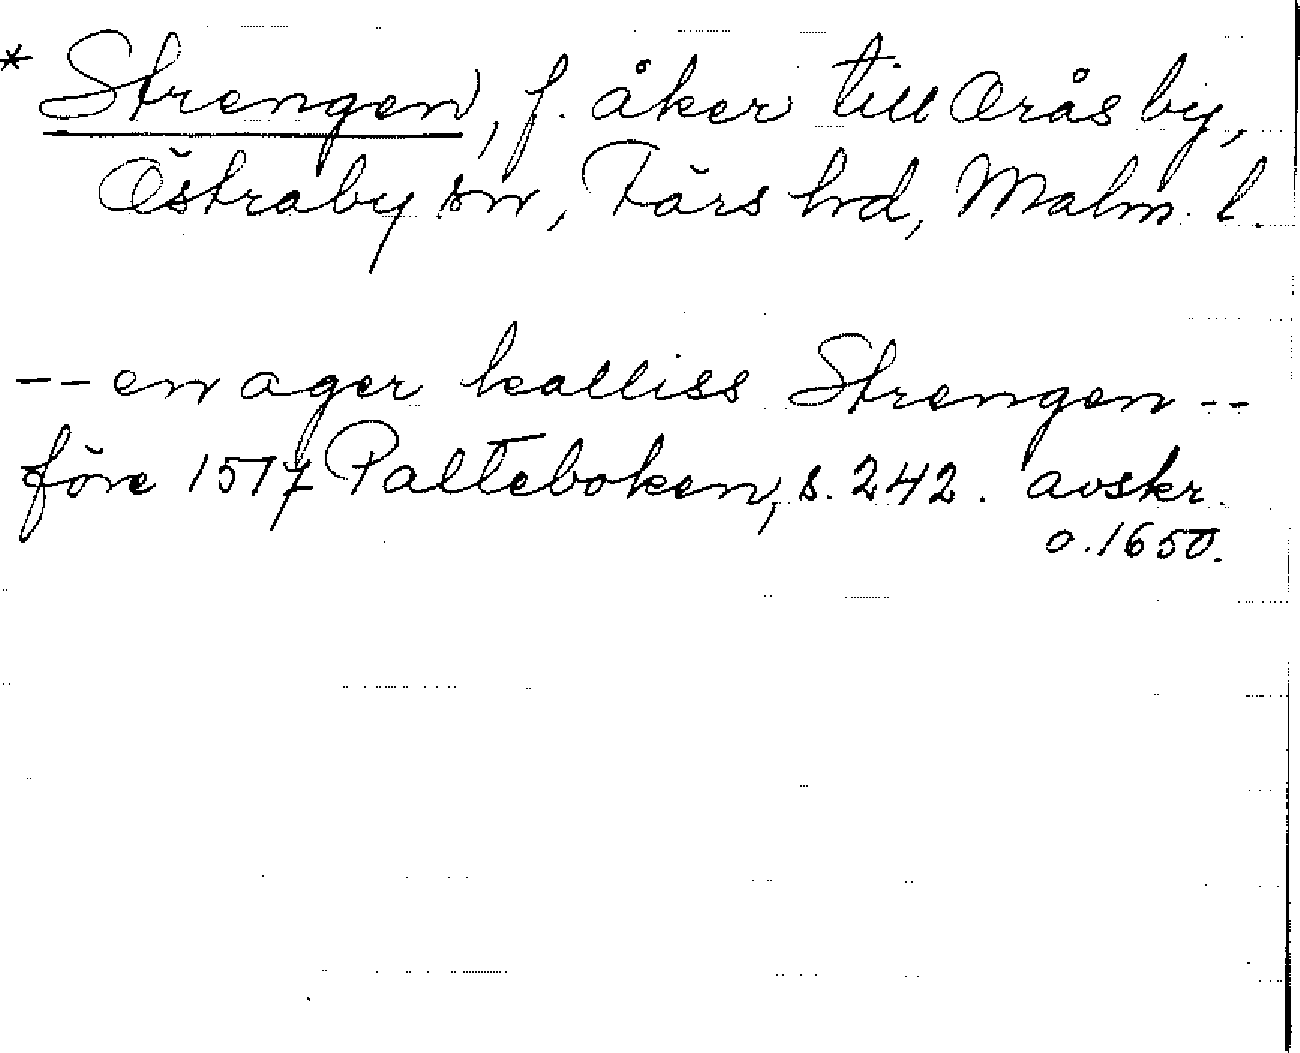 * Strengen, f. åker till Orås by,
Östraby sn, Färs hd, Malm. l.
-- en ager kalliss Strengen --
före 1517 Palteboken, s. 242. avskr.
o. 1650.